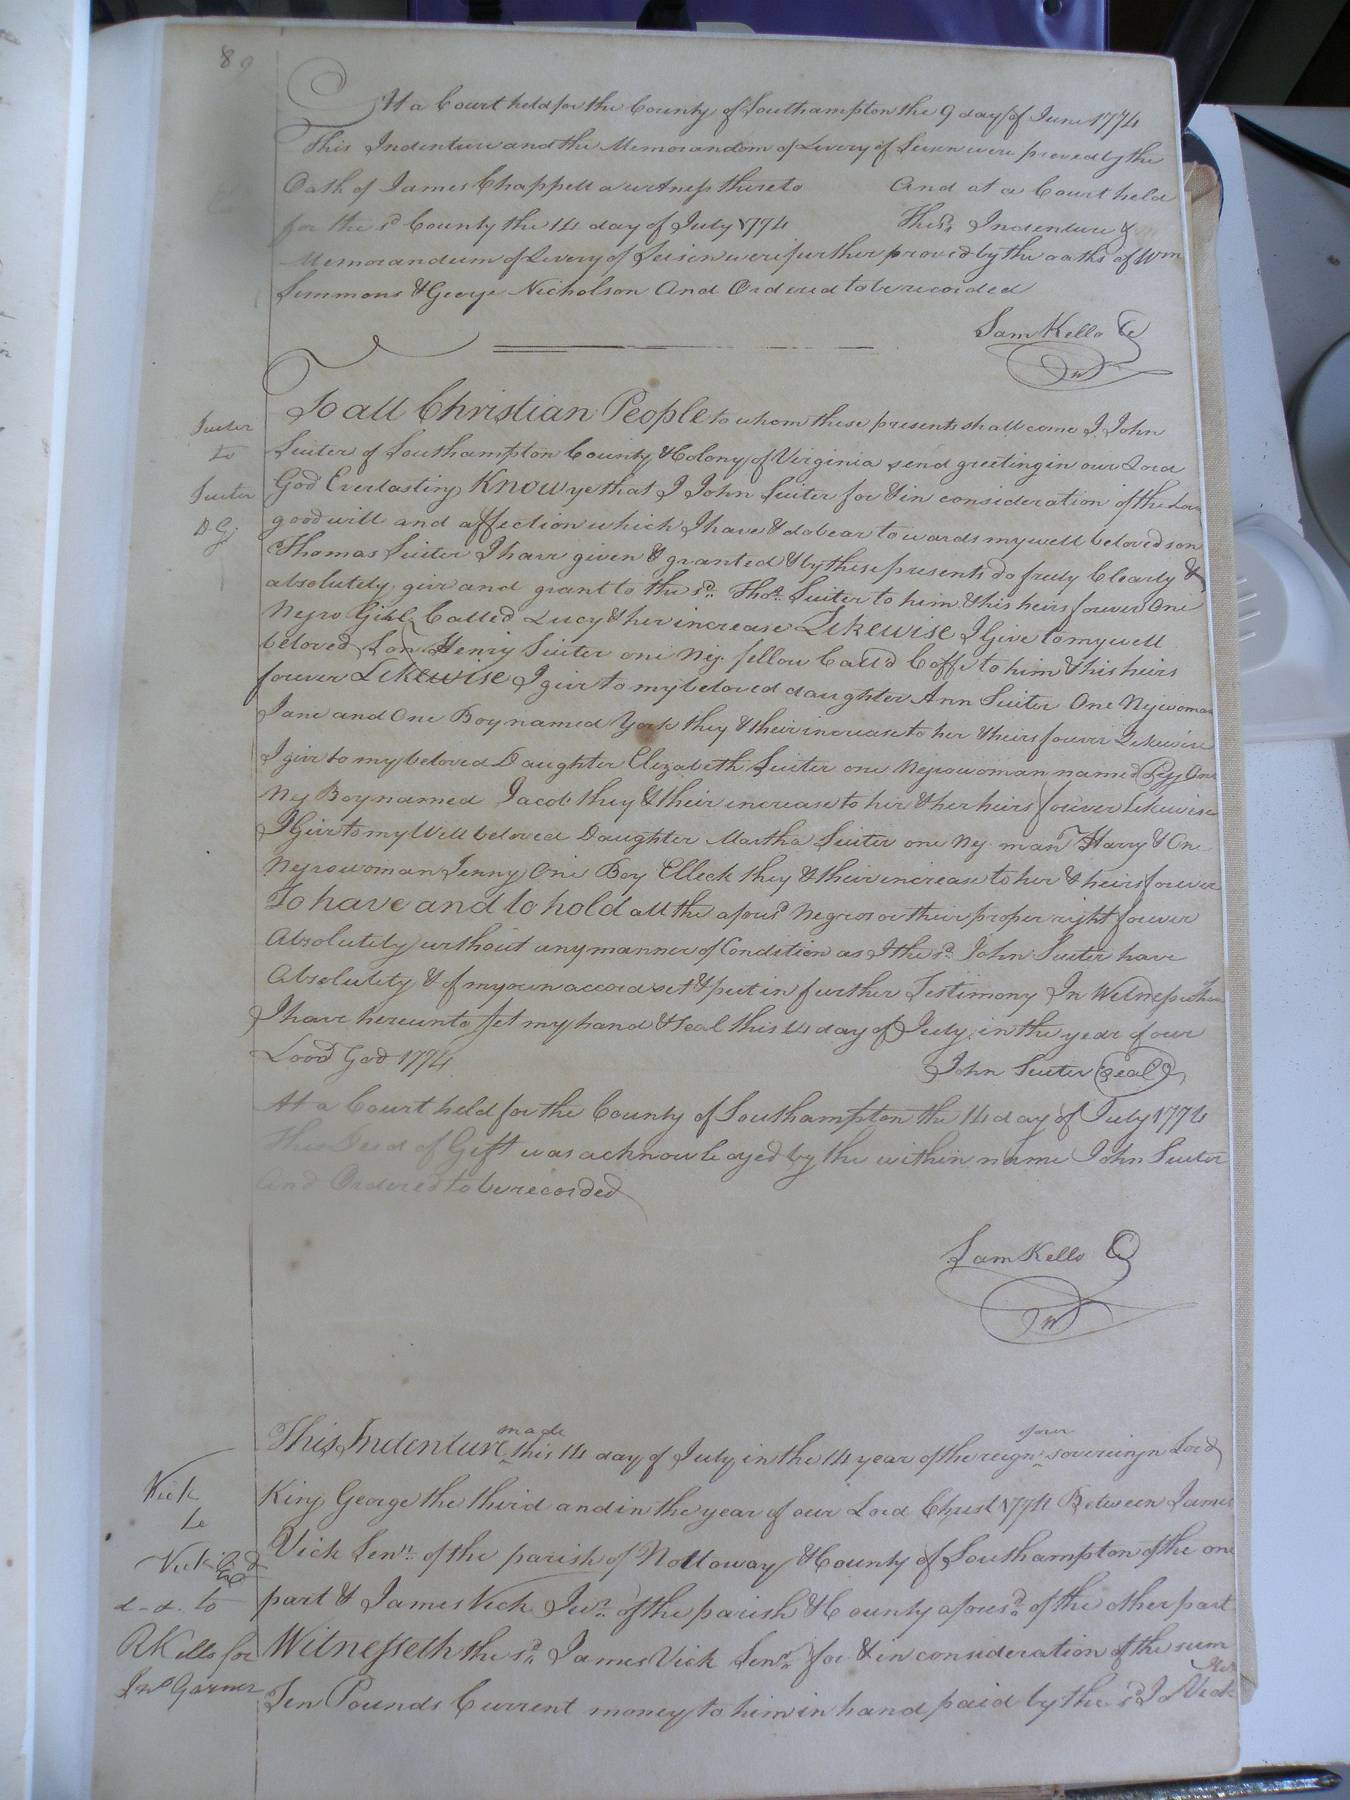 89
At a Court held for the County of Southampton the 9 day of June 1774
This Indenture and the Memorandom of Livery of Seisen were proved by the
Oath of James Chappell a witness thereto And at a Court held
for the sd County the 14 day of July 1774 This Indenture &
Memorandum of Livery of Seisen were further proved by the oaths of Wm
Simmons & George Nicholson And Ordered to be recorded
Sam Kello
Suiter
to
Suiter
D G
To all Christian People to whom these presents shall come I John
Suiter of Southampton County & Colony of Virginia send greeting in our Lord
God Everlasting Know ye that I John Suiter for & in consideration of the Love
good will and affection which I have & do bear towards my well beloved son
Thomas Suiter I have given & granted & by these presents do freely Clearly &
absolutely give and grant to the sd. Thos. Suiter to him & his heirs forever One
Negro Girl Called Lucy & her increase Likewise I Give to my well
beloved Son Henry Suiter one Neg. fellow Call'd Coffe to him & his heirs
forever Likewise I give to my beloved daughter Ann Suiter One Negwoman
Jane and One Boy named York they & their increase to her & heirs forever Likewise
I give to my beloved Daughter Elizabeth Suiter one Negrowoman named Pegg One
Neg Boy named Jacob they & their increase to her & her heirs forever Likewise
I Give to my Well beloved Daughter Martha Suiter one Neg. man Harry & One
Negrowoman Jenny One Boy Elleck they & their increase to her & heirs forever
To have and to hold all the aforesd Negros or their proper right forever
Absolutely without any manner of Condition as I the sd. John Suiter have
Absolutely & of my own accord set & put in further Testimony In Witness
I have hereunto set my hand & seal this 14 day of July in the year of our
Lord God 1774
John Suiter Seal
At a Court held for the County of Southampton the 14 day of July 1774
This Deed of Gift was acknowledged by the within name John Suiter
and Ordered to be recorded
Sam Kello
made of our
This Indenture this 14 day of July in the 14 year of the reign sovereign Lord
Vick
to
Vick
d-d. to
RKello for
Jno Garner
King George the third and in the year of our Lord Christ 1774 Between James
Vick Senr. of the parish of Nottoway & County of Southampton of the one
part & James Vick Junr. of the parish & County aforesd. of the other part
Witnesseth the sd. James Vick Senr. for & in consideration of the sum
Ten Pounds Current money to him in hand paid by the sd. J Vick